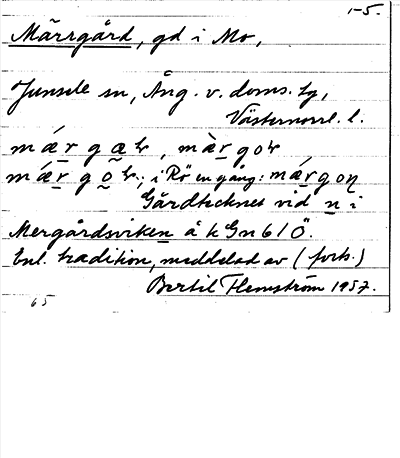 1-5.
Märrgård, gd i Mo,
Junsele sn, Ång. v. doms. tg,
Västernorrl. l.
mǽr g æ̰ ɫr, mæ̀r̲ goɫr
mǽr̲ g o̰ ɫr; i Rö en gång: már̲gon
Gårdtecknet vid n̲ i
Mergårdsviken å k Gn 6 / Ö.
Enl. tradition, meddelad av (forts.)
Bertil Flemström 1957.
65